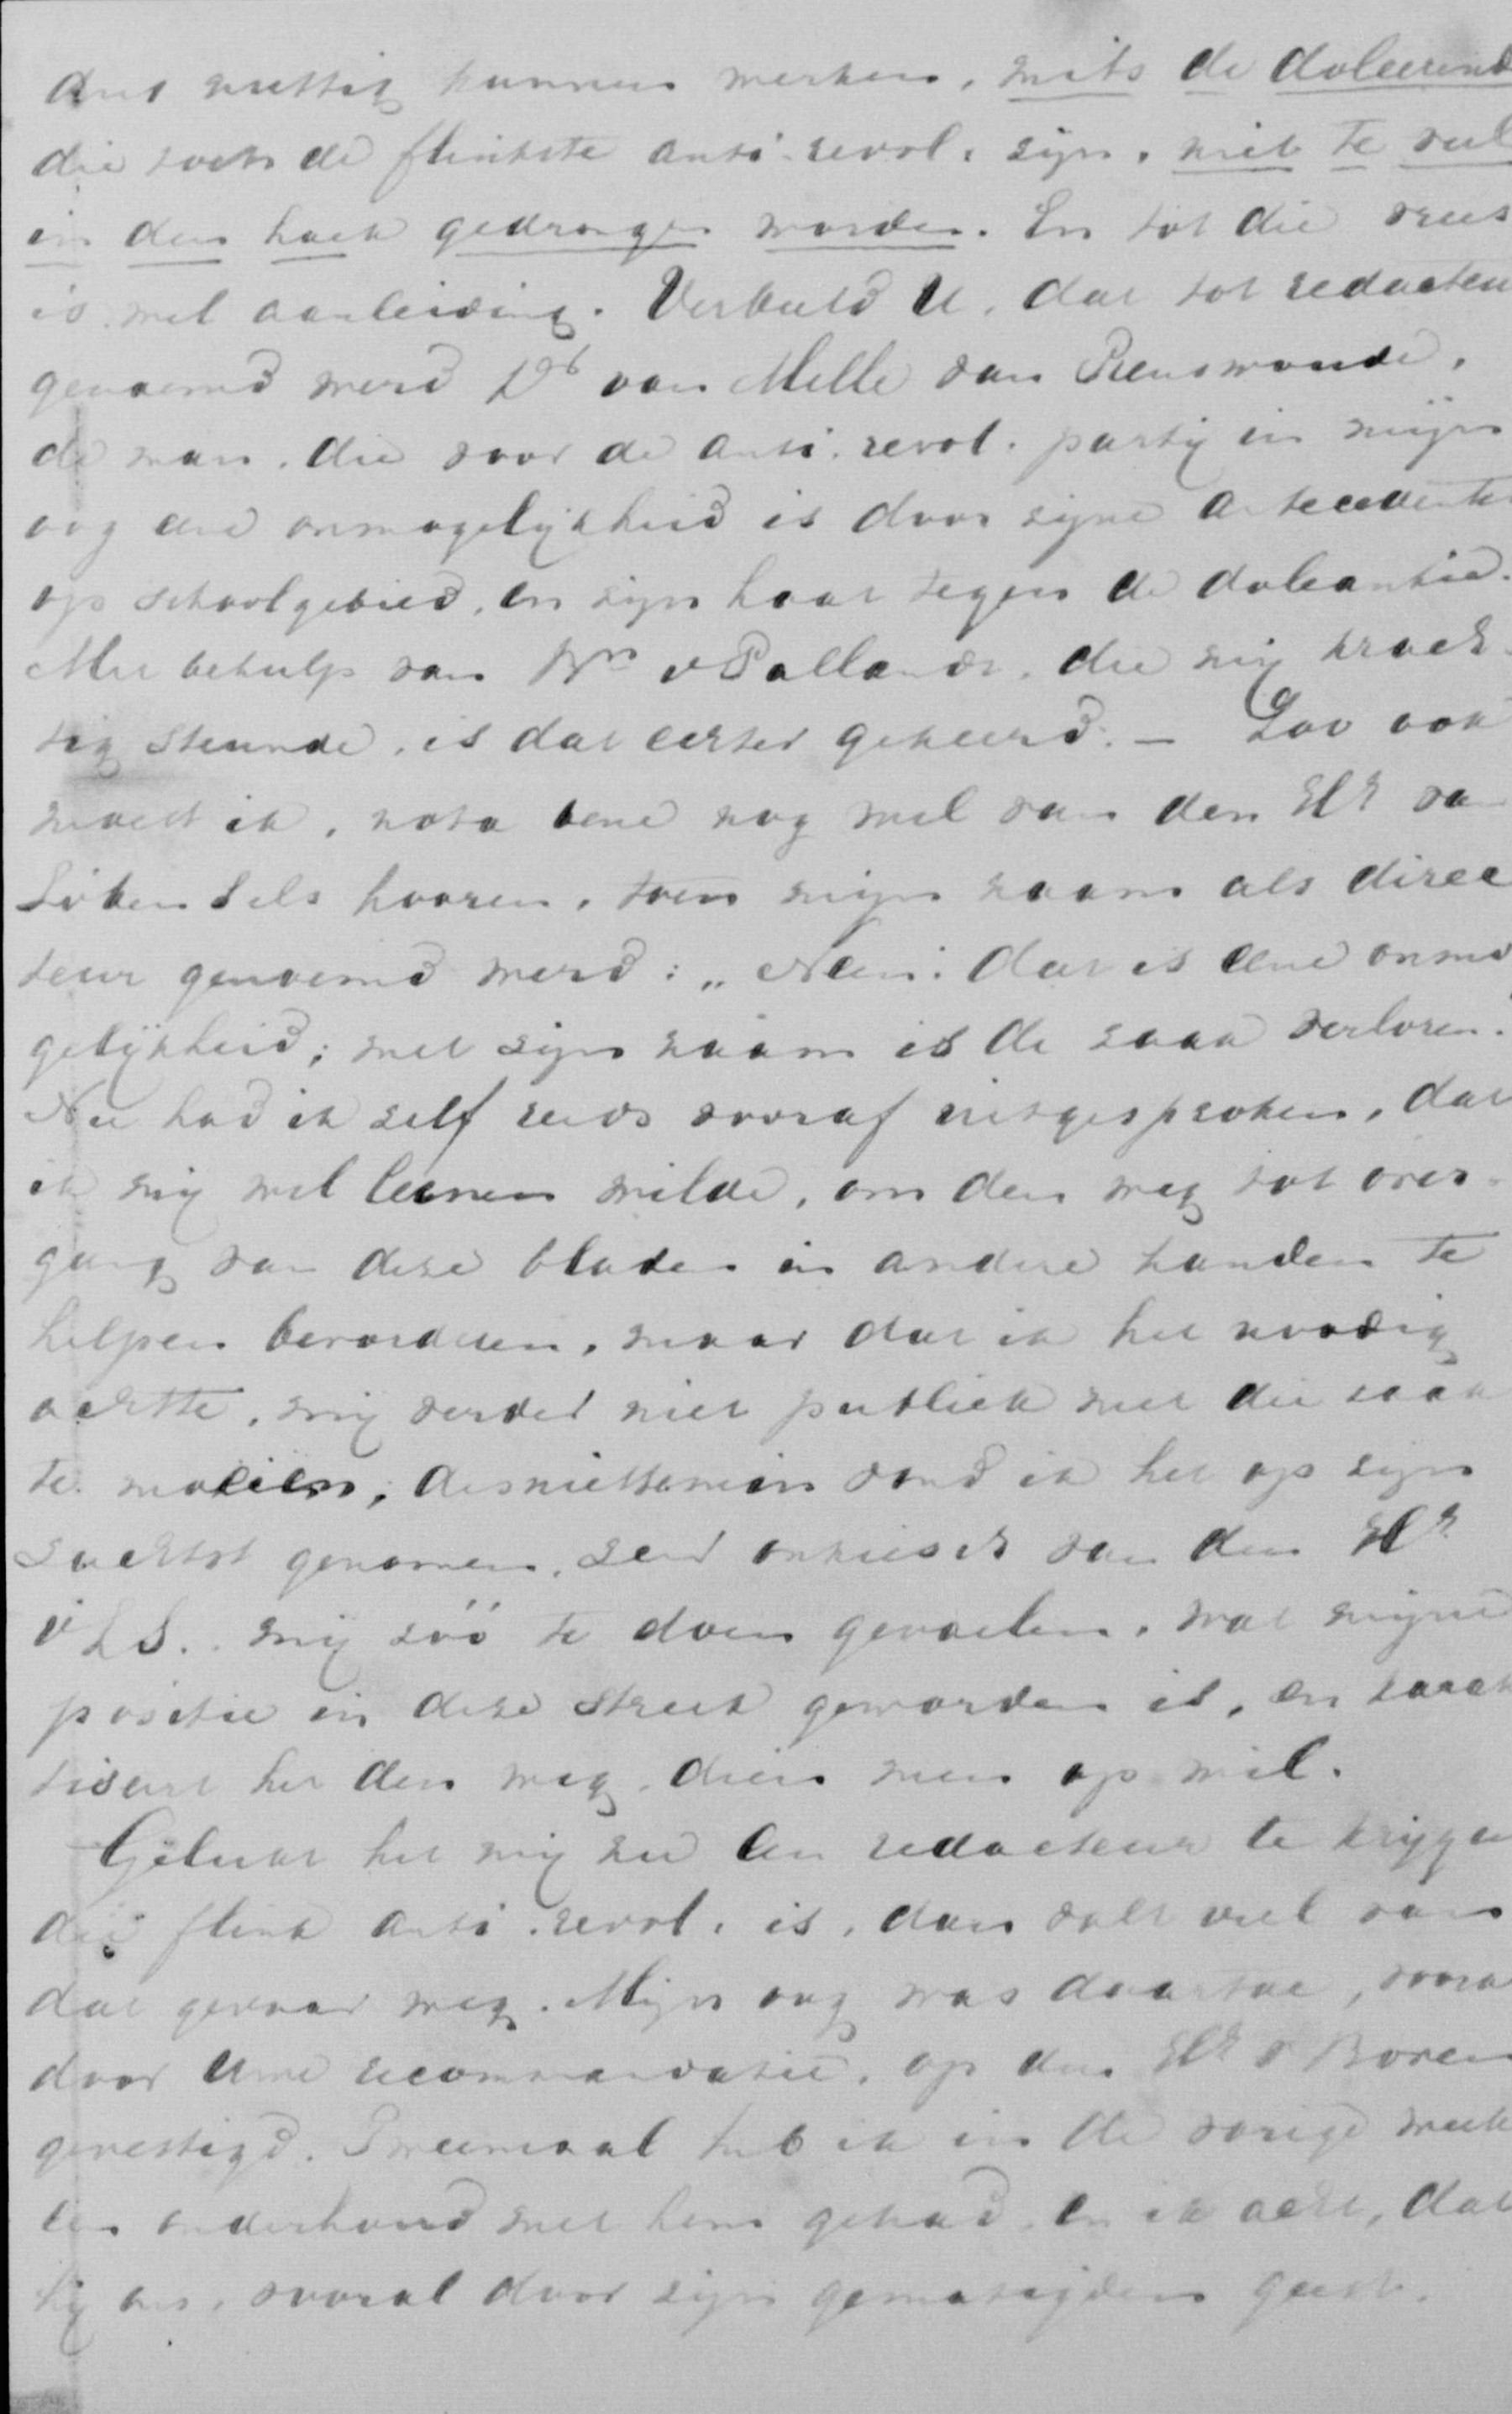 dus nuttig kunnen werken, mits de doleerend
die toch de flinkste anti-revol. zijn, niet te veel
in den hoek gedrongen worden. En tot die vrees
is wel aanleiding. Verbeeld U, dat tot redacteu
genoemd werd Ds van Melle van Renswoude,
de man, die voor de anti. revol. partij in mijn
oog eene onmogelijkheid is door zijne antecedente
op schoolgebied, en zijn haat tegen de doleantie.
Met behulp van Bn v Pallandt, die mij krach
tig steunde, is dat echter gekeerd. – Zoo ook
moest ik, nota bene nog wel van den Hr va
Löben Sels hooren, toen mijn naam als direc
teur genoemd werd: „Neen: dat is eene onmo
gelijkheid; met zijn naam is de zaak verloren.
Nu had ik zelf reeds vooraf uitgesproken, dat
ik mij wel leenen wilde, om den weg tot over-
gang van deze bladen in andere handen te
helpen bevorderen, maar dat ik het noodig
achtte, mij verder niet publiek met die zaak
te moeien; desniettemin vond ik het op zijn
zachtst genomen, zeer onkiesch van den Hr
v L S. mij zóó te doen gevoelen, wat mijne
positie in deze streek geworden is, en karak
riseert het den weg, dien men op wil.
Gelukt het mij nu een redacteur te krijgen
die flink anti. revol. is, dan valt veel van
dat gevaar weg. Mijn oog was daartoe, vooral
door Uwe recommandatie, op den Hr v Boven
gevestigd. Tweemaal heb ik in de vorige week
een onderhoud met hem gehad, en ik acht, dat
hij ons, vooral door zijn gematigden geest,